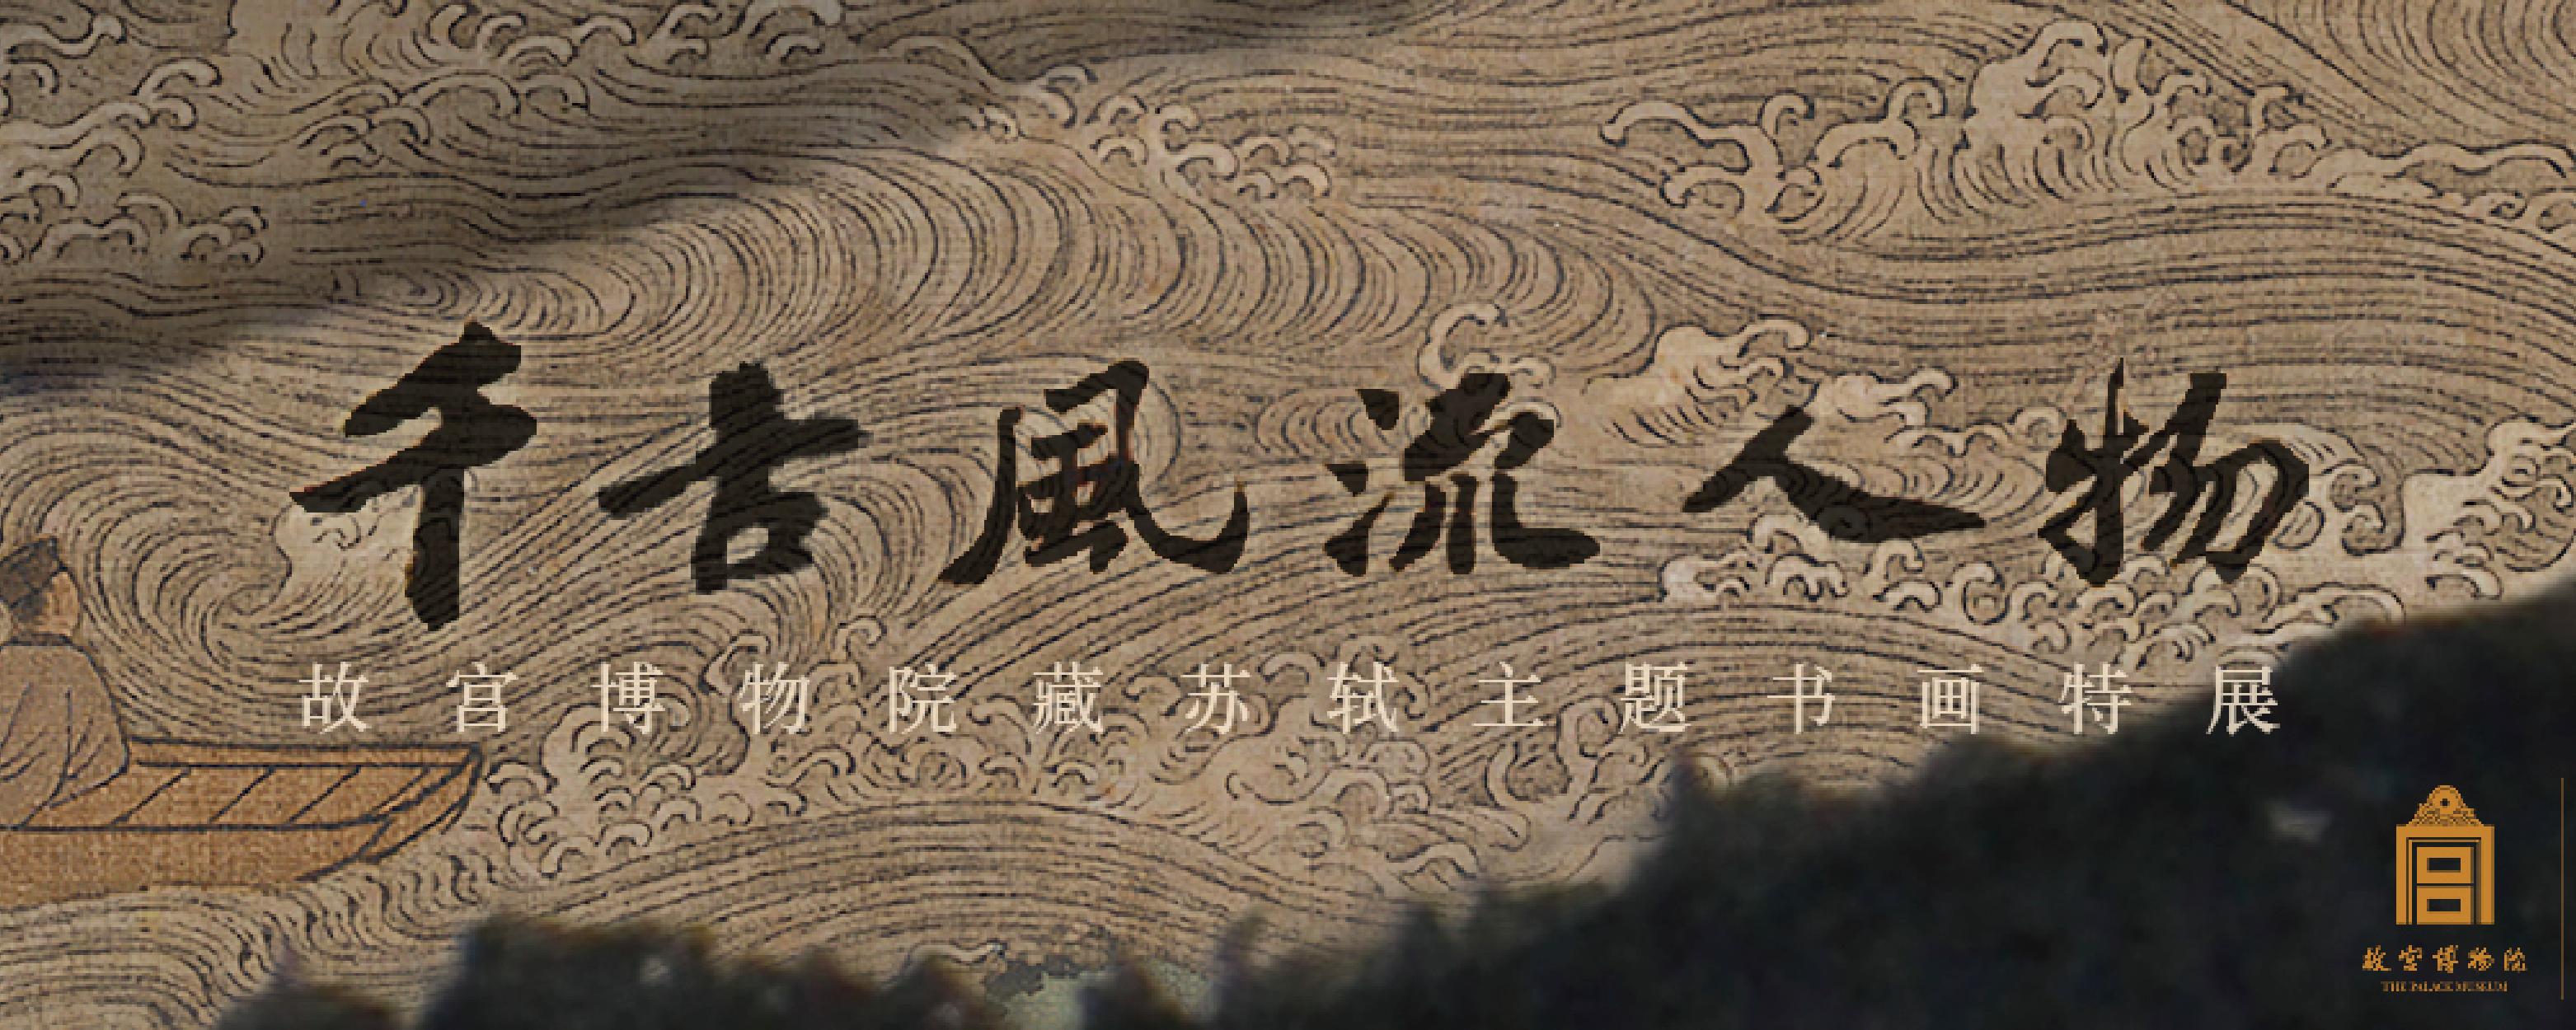 千古風流人物
故宫博物院藏苏轼主题书画特展
故宫博物院
THE PALACE MUSEUM